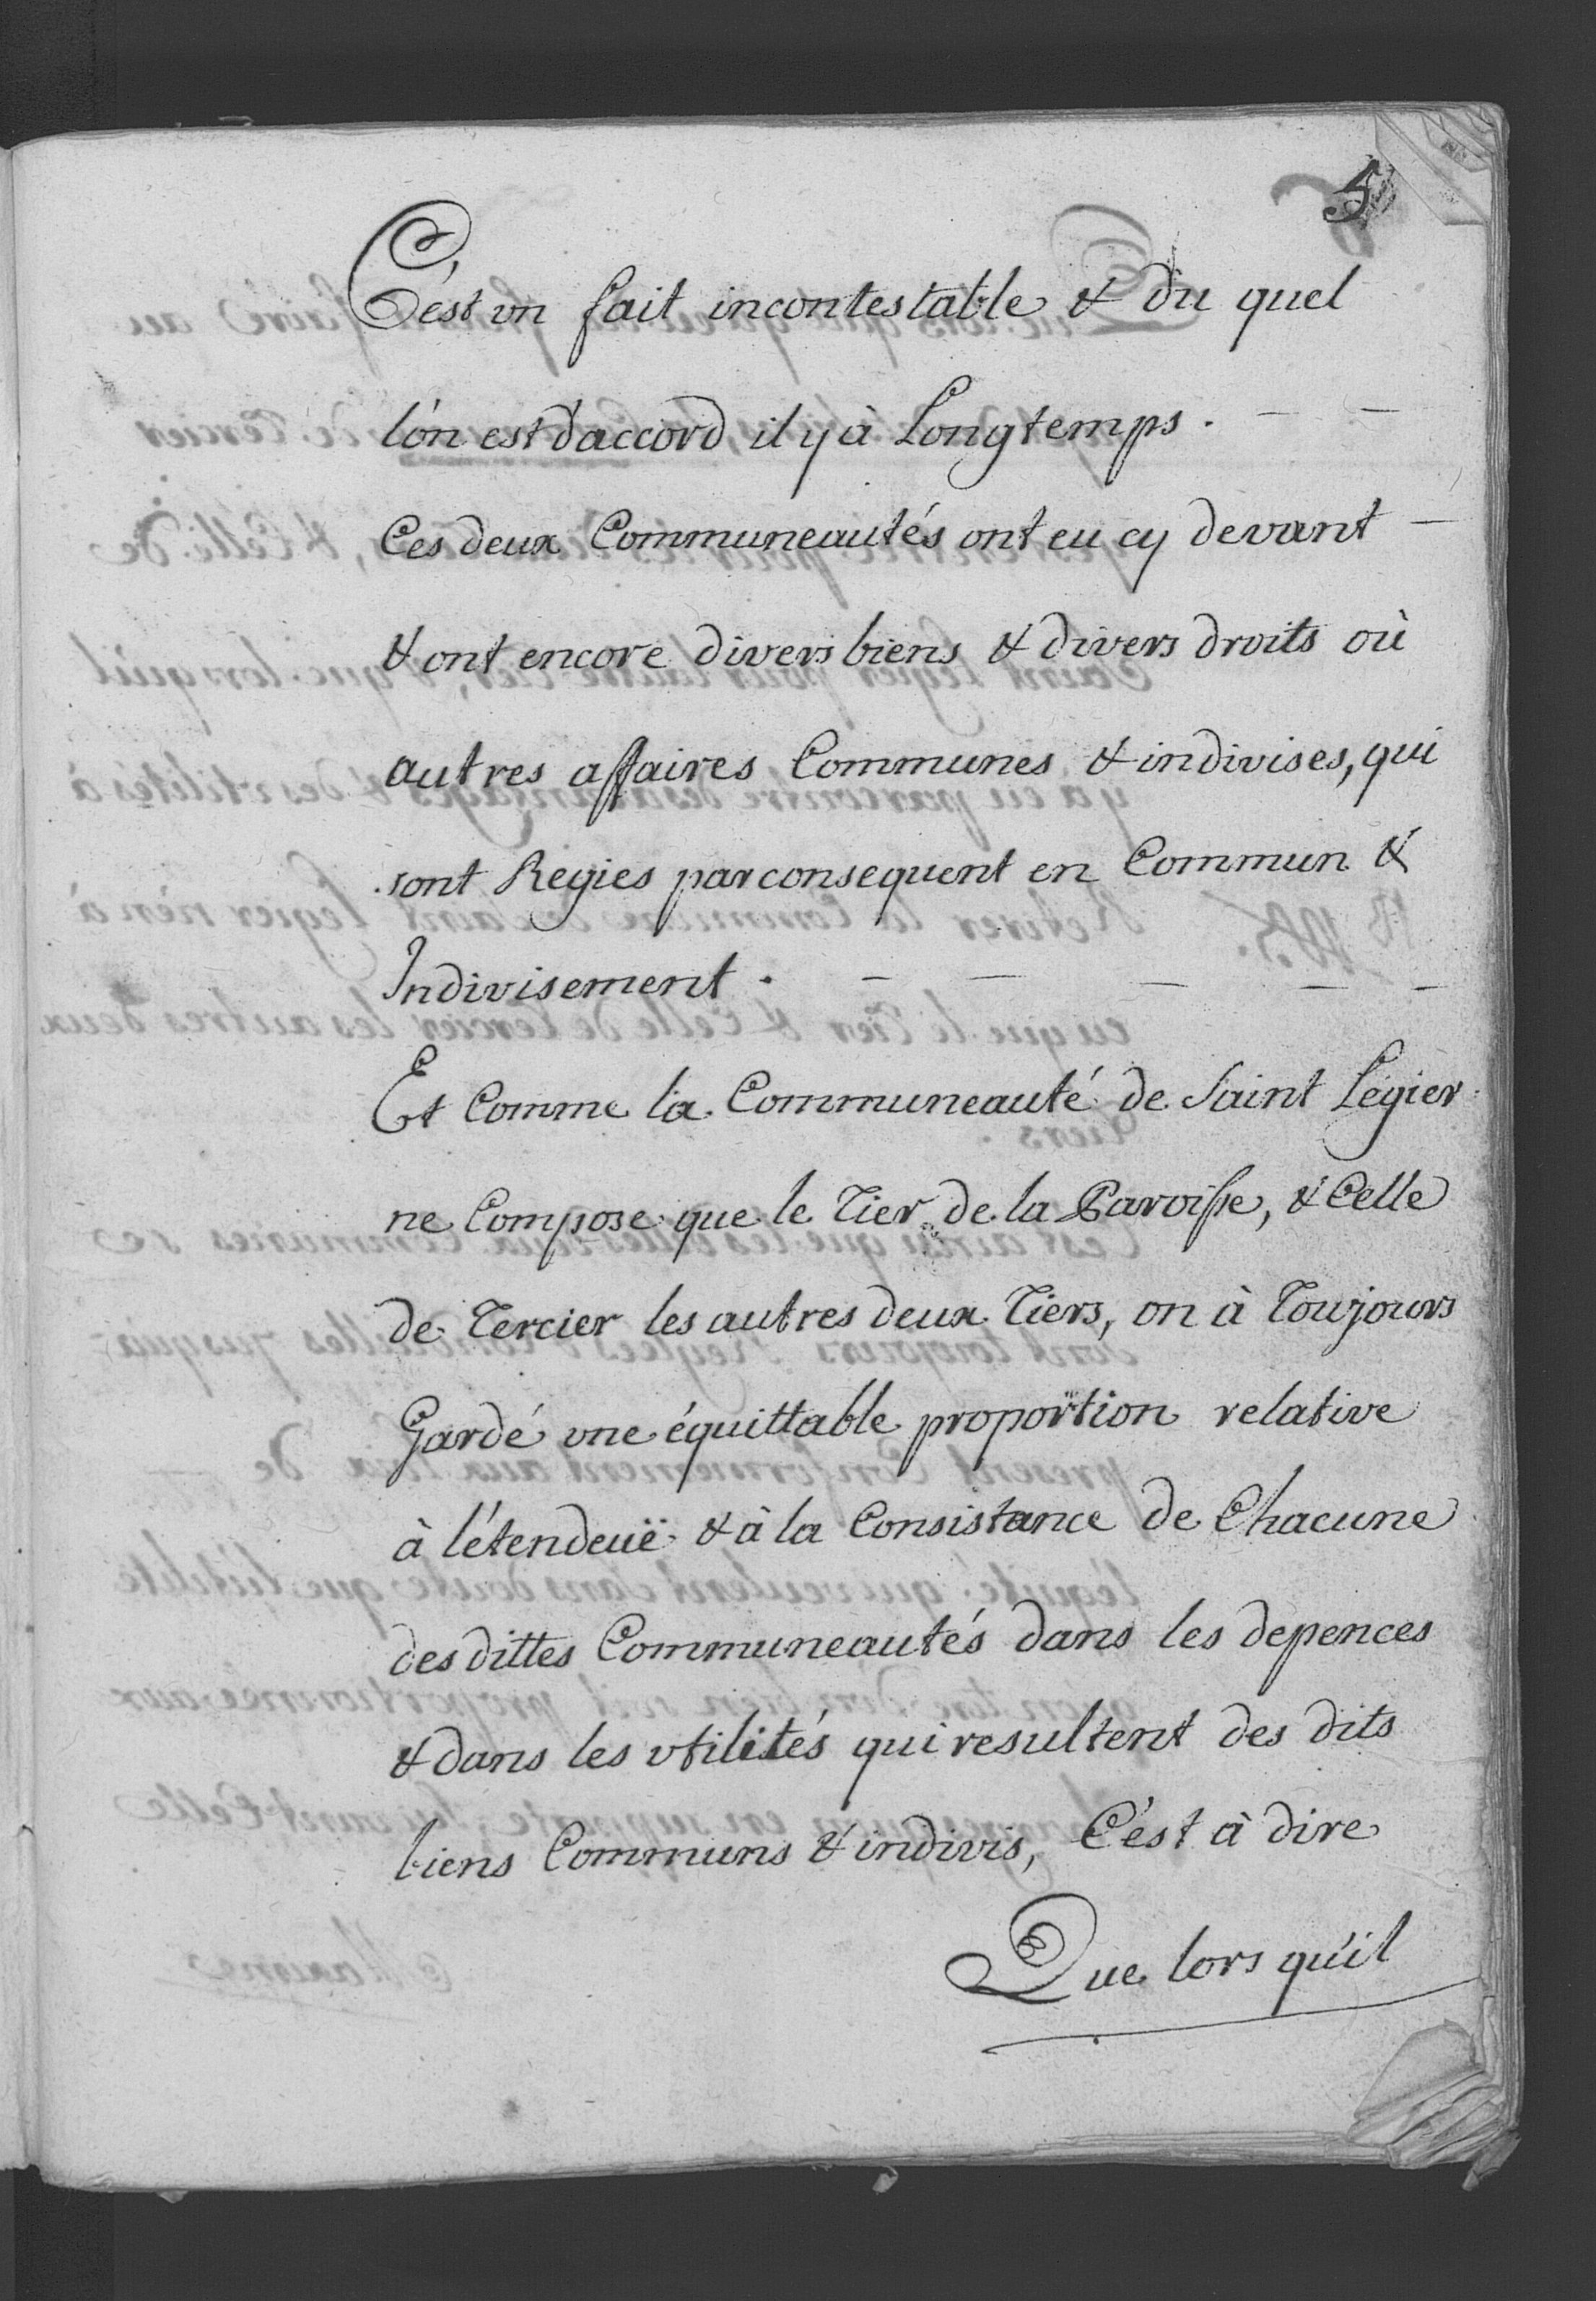 5
C'est vn fait incontestable & du quel
l'on est d'accord il y à Longtemps. — —
Ces deux Communeautés ont eu cy devant —
& ont encore divers biens & divers droits où
autres affaires Communes & indivises, qui
sont Regies par consequent en Commun &
Indivisement. — — — — —
Et Comme la Communeauté de Saint Légier
ne Compose que le Tier de la Paroisse, & Celle
de Tercier les autres deux Tiers, on à Toujours
Gardé vne équittable proportion relative
à l'étendeuë & à la Consistance de Chacune
des dittes Communeautés dans les depences
& dans les vtilités qui resultent des dits
biens Communs & indivis, C'est à dire
Que lors qu'il